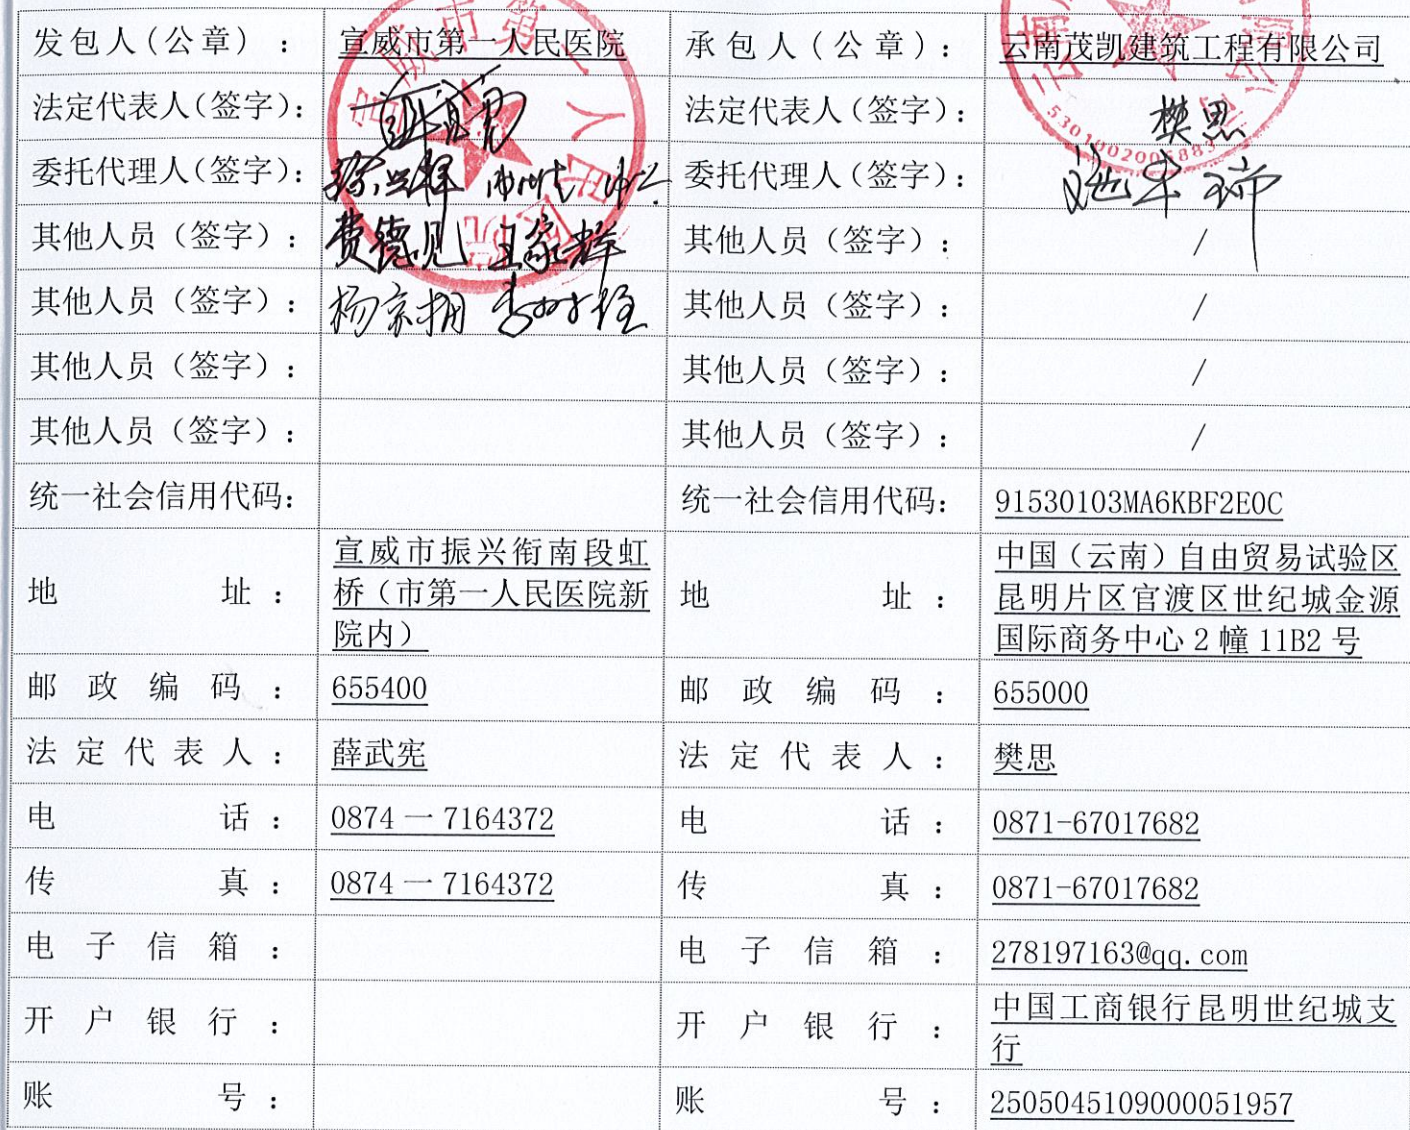 发包人(公章): 宣威市第一人民医院 承包人(公章): 云南茂凯建筑工程有限公司
法定代表人(签字): 法定代表人(签字): 樊思
委托代理人(签字): 委托代理人(签字):
其他人员(签字): 费德见 王家群 其他人员(签字): /
其他人员(签字): 其他人员(签字): /
其他人员(签字): 其他人员(签字): /
其他人员(签字): 其他人员(签字): /
统一社会信用代码: 统一社会信用代码: 91530103MA6KBF2E0C
地址: 宣威市振兴衔南段虹 地址: 中国(云南)自由贸易试验区
桥(市第一人民医院新 昆明片区官渡区世纪城金源
院内) 国际商务中心2幢11B2号
邮政编码: 655400 邮政编码: 655000
法定代表人: 薛武宪 法定代表人: 樊思
电话: 0874一7164372 电话: 0871-67017682
传真: 0874一7164372 传真: 0871-67017682
电子信箱: 电子信箱: 278197163@qq.com
开户银行: 开户银行: 中国工商银行昆明世纪城支
行
账号: 账号: 2505045109000051957